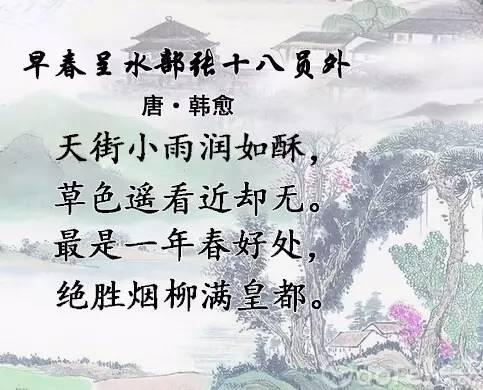 早春呈水部张十八员外
唐·韩愈
天街小雨润如酥，
草色遥看近却无。
最是一年春好处，
绝胜烟柳满皇都。